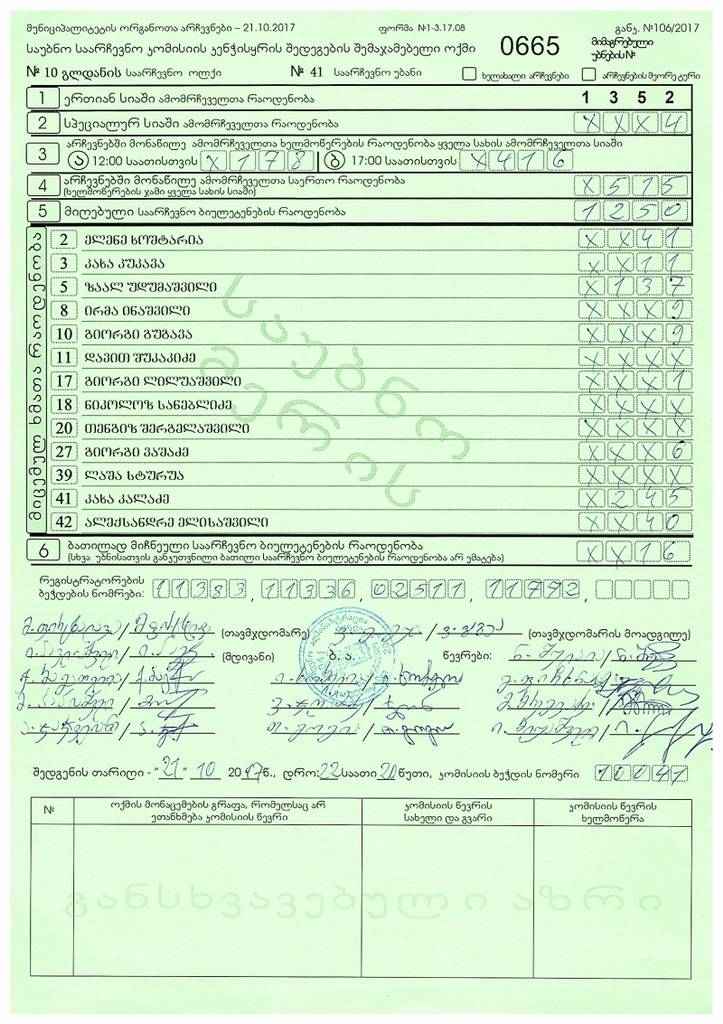 მუნიციპალიტეტის ორგანოთა არჩევნები – 21.10.2017 ფორმა №1-3.17.08 განკ. №106/2017
საუბნო საარჩევნო კომისიის კენჭისყრის შედეგების შემაჯამებელი ოქმი 0665 მიმაგრებული უბნების№
№ 10 გლდანის საარჩევნო ოლქი № 41 საარჩევნო უბანი ხელახალი არჩევნები არჩევნების მეორე ტური
1 ერთიან სიაში ამომრჩეველთა რაოდენობა 1 3 5 2
2 სპეციალურ სიაში ამომრჩეველთა რაოდენობა X X X 4
3 არჩევნებში მონაწილე ამომრჩეველთა ხელმოწერების რაოდენობა ყველა სახის ამომრჩეველთა სიაში
ა 12:00 საათისთვის X 1 7 8 ბ 17:00 საათისთვის X 4 1 6
4 არჩევნებში მონაწილე ამომრჩეველთა საერთო რაოდენობა X 5 1 5
(ხელმოწერების ჯამი ყველა სახის სიაში)
5 მიღებული საარჩევნო ბიულეტენების რაოდენობა 1 2 5 0
მიცემულ ხმათა რაოდენობა
2 ელენე ხოშტარია X X 4 1
3 კახა კუკავა X X 1 1
5 ზაალ უდუმაშვილი X 1 3 7
8 ირმა ინაშვილი X X X 9
10 გიორგი გუგავა X X X 9
11 დავით შუკაკიძე X X X X
17 გიორგი ლილუაშვილი X X X 1
18 ნიკოლოზ სანებლიძე X X X X
20 თენგიზ შერგელაშვილი X X X X
27 გიორგი ვაშაძე X X X 6
39 ლაშა სტურუა X X X X
41 კახა კალაძე X 2 4 5
42 ალექსანდრე ელისაშვილი X X 4 0
საუბნო
მერის
6 ბათილად მიჩნეული საარჩევნო ბიულეტენების რაოდენობა X X 1 6
(სხვა უბნისათვის განკუთვნილი ბათილი საარჩევნო ბიულეტენების რაოდენობა არ ემატება)
რეგისტრატორების
ბეჭდების ნომრები: 11383, 11336, 02511, 11792,
(თავმჯდომარე) (თავმჯდომარის მოადგილე)
(მდივანი) ბ. ა. წევრები:
შედგენის თარიღი - "21" 10 2017წ., დრო: 22 საათი 20 წუთი, კომისიის ბეჭდის ნომერი 10041
№ ოქმის მონაცემების გრაფა, რომელსაც არ ეთანხმება კომისიის წევრი კომისიის წევრის სახელი და გვარი კომისიის წევრის ხელმოწერა
განსხვავებული აზრი